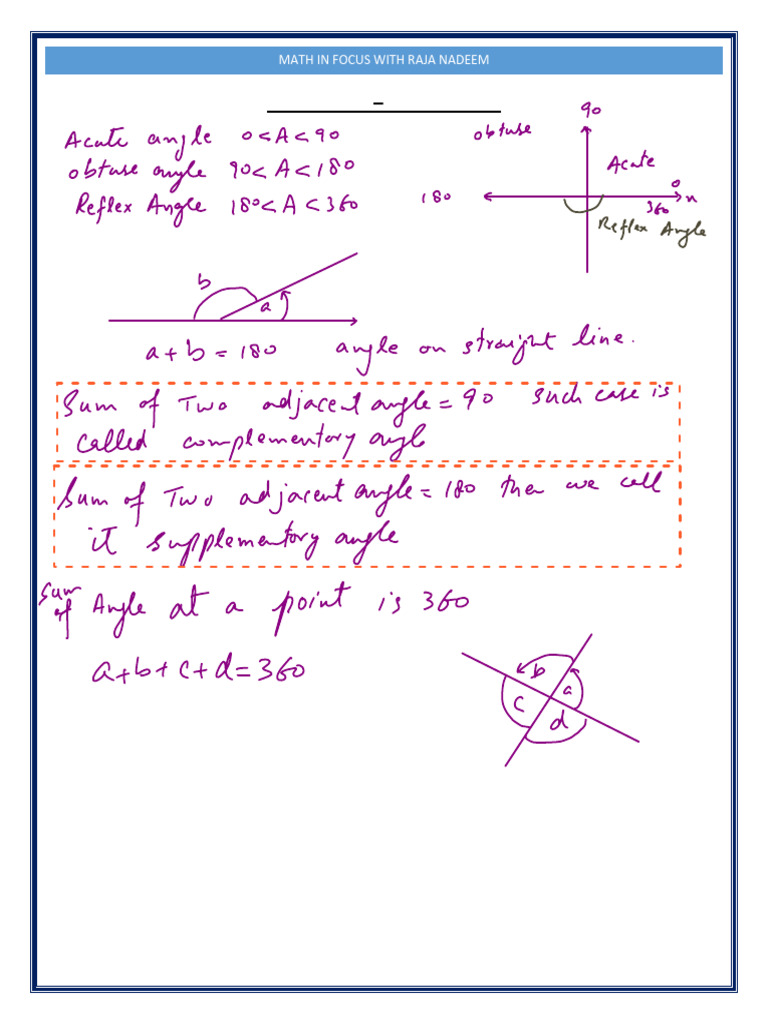 MATH IN FOCUS WITH RAJA NADEEM
Acute angle 0<A<90
obtuse angle 90<A<180
Reflex Angle 180<A<360
90
obtuse
Acute
180
0
360 x
Reflex Angle
b
a
a+b=180 angle on straight line.
Sum of Two adjacent angle=90 such case is
called complementary angle
Sum of Two adjacent angle=180 then we call
it supplementary angle
Sum of Angle at a point is 360
a+b+c+d=360
b
a
c
d